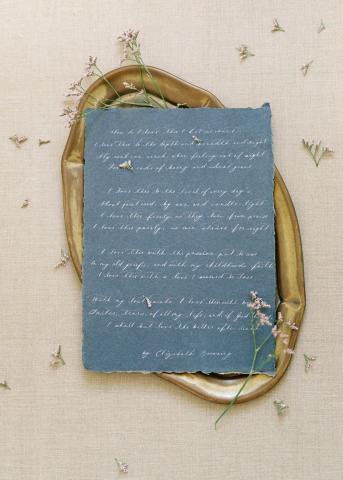 How do I love thee? Let me count
I love thee to the depth and breadth and height
My soul can reach, when feeling out of sight
For the ends of being and ideal grace
I love thee to the level of every day's
Most quiet need, by sun and candle-light
I love thee freely, as they turn from praise
I love thee purely, as men strive for right
I love thee with the passion put to use
In my old griefs, and with my childhood's faith
I love thee with a love I seemed to lose
With my lost saints. I love thee with
Smiles, tears, of all my life; and, if God
I shall but love thee better after death
by Elizabeth Browning